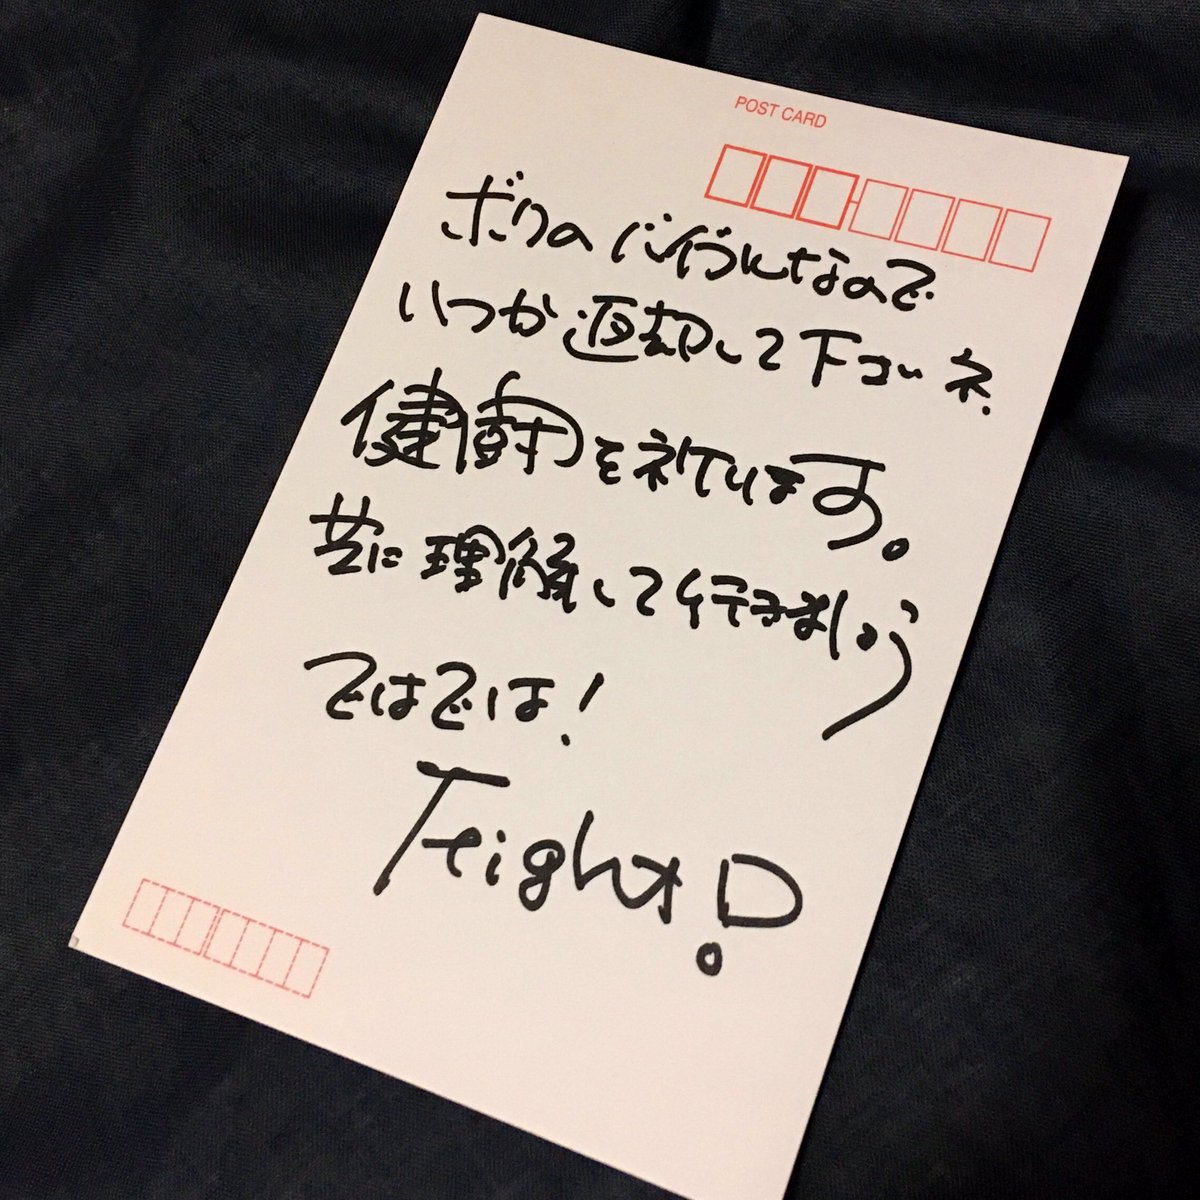 POST CARD
ボクのバイブルなので
いつか返却して下コいネ.
健闘を祈ています。
共に理解して行きましょう
ではでは!
Teight.D